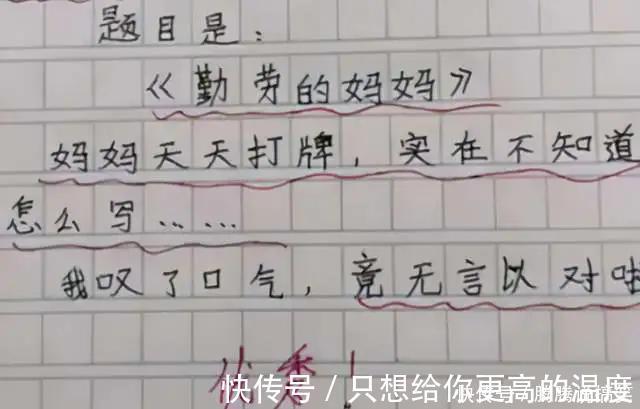 题目是：
《勤劳的妈妈》
妈妈天天打牌，实在不知道
怎么写……
我叹了口气，竟无言以对
优秀！
快传号/只想给你更高的温度